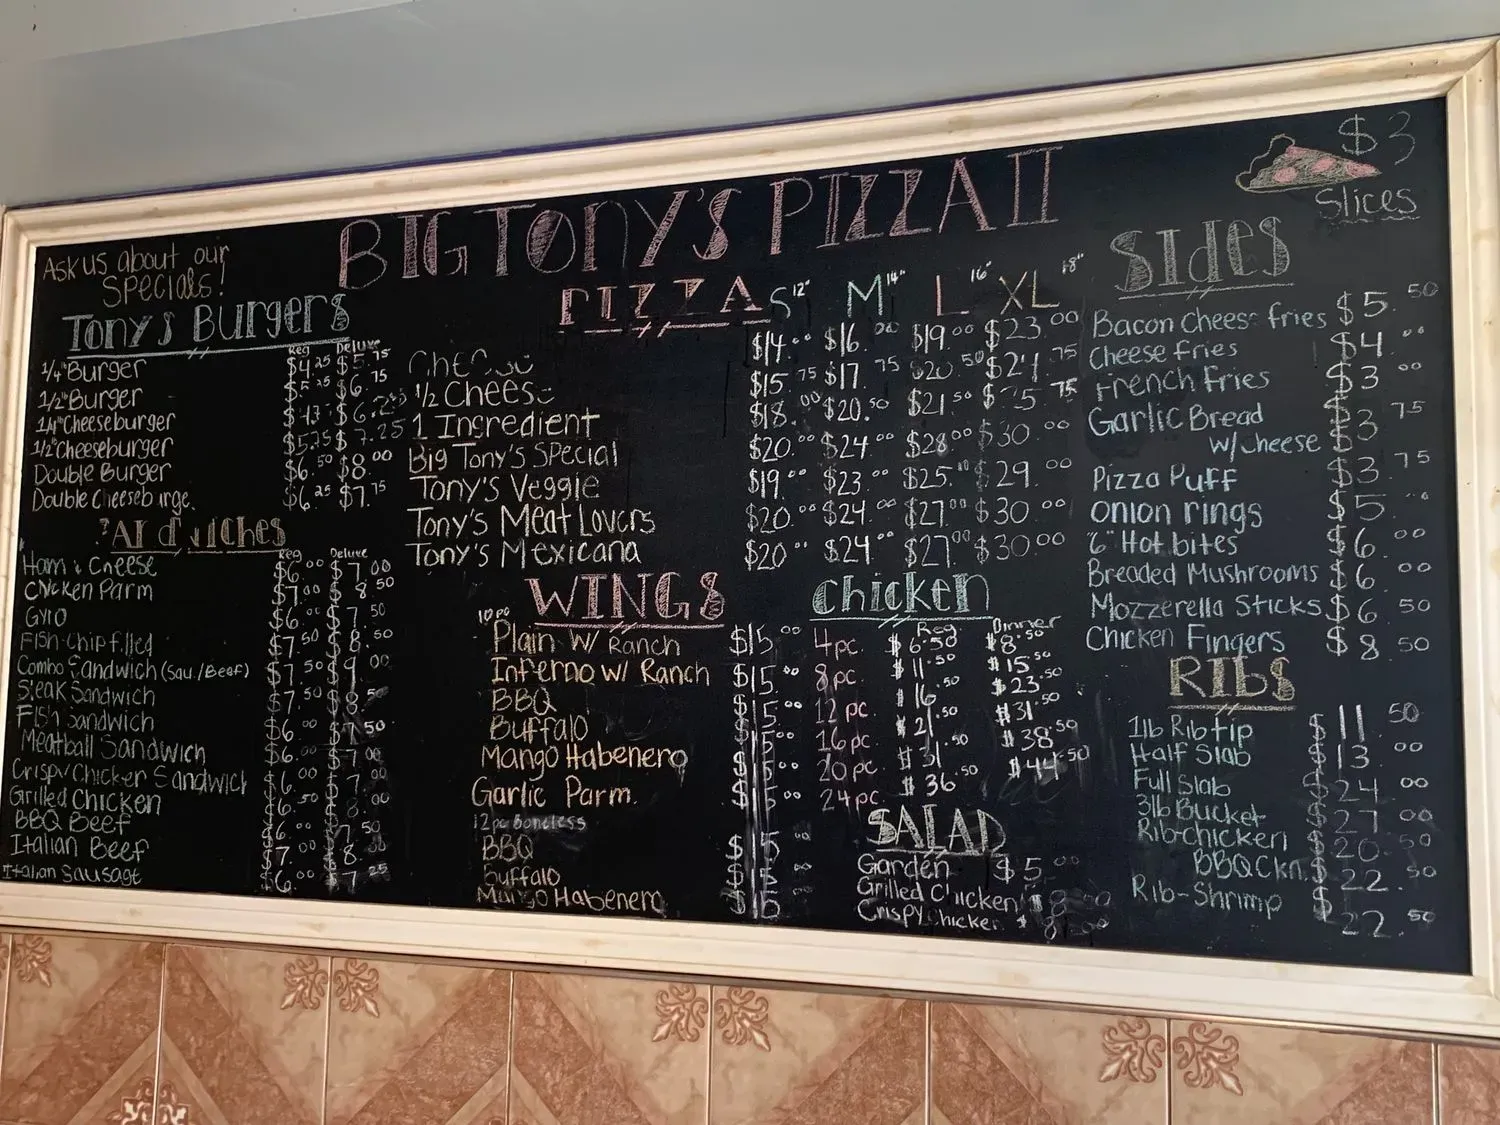 BIG TONY'S PIZZA II
$3
Slices
Ask us about our
Specials!
Tony's Burgers
Reg Deluxe
1/4" Burger $4.25 $5.75
1/2" Burger $5.25 $6.75
1/4" Cheeseburger
1/2" Cheeseburger $5.75 $7.25
Double Burger $6.50 $8.00
Double Cheeseb $6.25 $7.75
Reg Deluxe
Ham & Cheese $6.00 $7.00
Chicken Parm $7.00 8.50
Gyro $6.00 $7.50
Fish-Chip-filled $7.50 $8.50
Combo Sandwich (Sau./Beef) $7.50 $9.00
Steak Sandwich $7.50
Fish Sandwich $6.00 $7.50
Meatball Sandwich $6.00 $7.00
Crispy Chicken Sandwich $6.00 $7.00
Grilled Chicken $6.50 $8.00
BBQ Beef $6.00 $7.50
Italian Beef $7.00 $8.00
Italian Sausage $6.00 $7.25
PIZZA S 12" M 14" L 16" XL 18"
Cheese $14.00 $16.00 $19.00 $23.00
1/2 Cheese $15.75 $17.75 $20.50 $24.75
1 Ingredient $18.00 $20.50 $21.50 75
Big Tony's Special $20.00 $24.00 $28.00 $30.00
Tony's Veggie $19.00 $23.00 $25. $29.00
Tony's Meat Lovers $20.00 $24.00 $27.00 $30.00
Tony's Mexicana $20.00 $24.00 $27.00 $30.00
WINGS
10pc
Plain W/ Ranch $15.00
Inferno w/ Ranch $15.00
BBQ $15.00
Buffalo $15.00
Mango Habenero $15.00
Garlic Parm. $15.00
12pc Boneless
BBQ $15
Buffalo $15
Mango Habenero $15
Chicken
Reg Dinner
4pc. $6.50 $8.50
8pc. $11.50 $15.50
12pc. $16.50 $23.50
16pc. $21.50 $31.50
20pc. $31.50 $38.50
24pc. $36.50 $44.50
SALAD
Garden $5.00
Grilled Chicken $8.00
Crispy Chicken $8.00
Sides
Bacon Cheese fries $5.50
Cheese fries $4.00
French Fries $3.00
Garlic Bread
w/cheese $3.75
Pizza Puff $3.75
Onion rings $5.00
6" Hot bites $6.00
Breaded Mushrooms $6.00
Mozzerella Sticks $6.50
Chicken Fingers $8.50
RIBS
1lb Rib tip $11.50
Half Slab $13.00
Full Slab $24.00
3lb Bucket $27.00
Rib-chicken $20.50
BBQ Ckn. $22.50
Rib-Shrimp $22.50